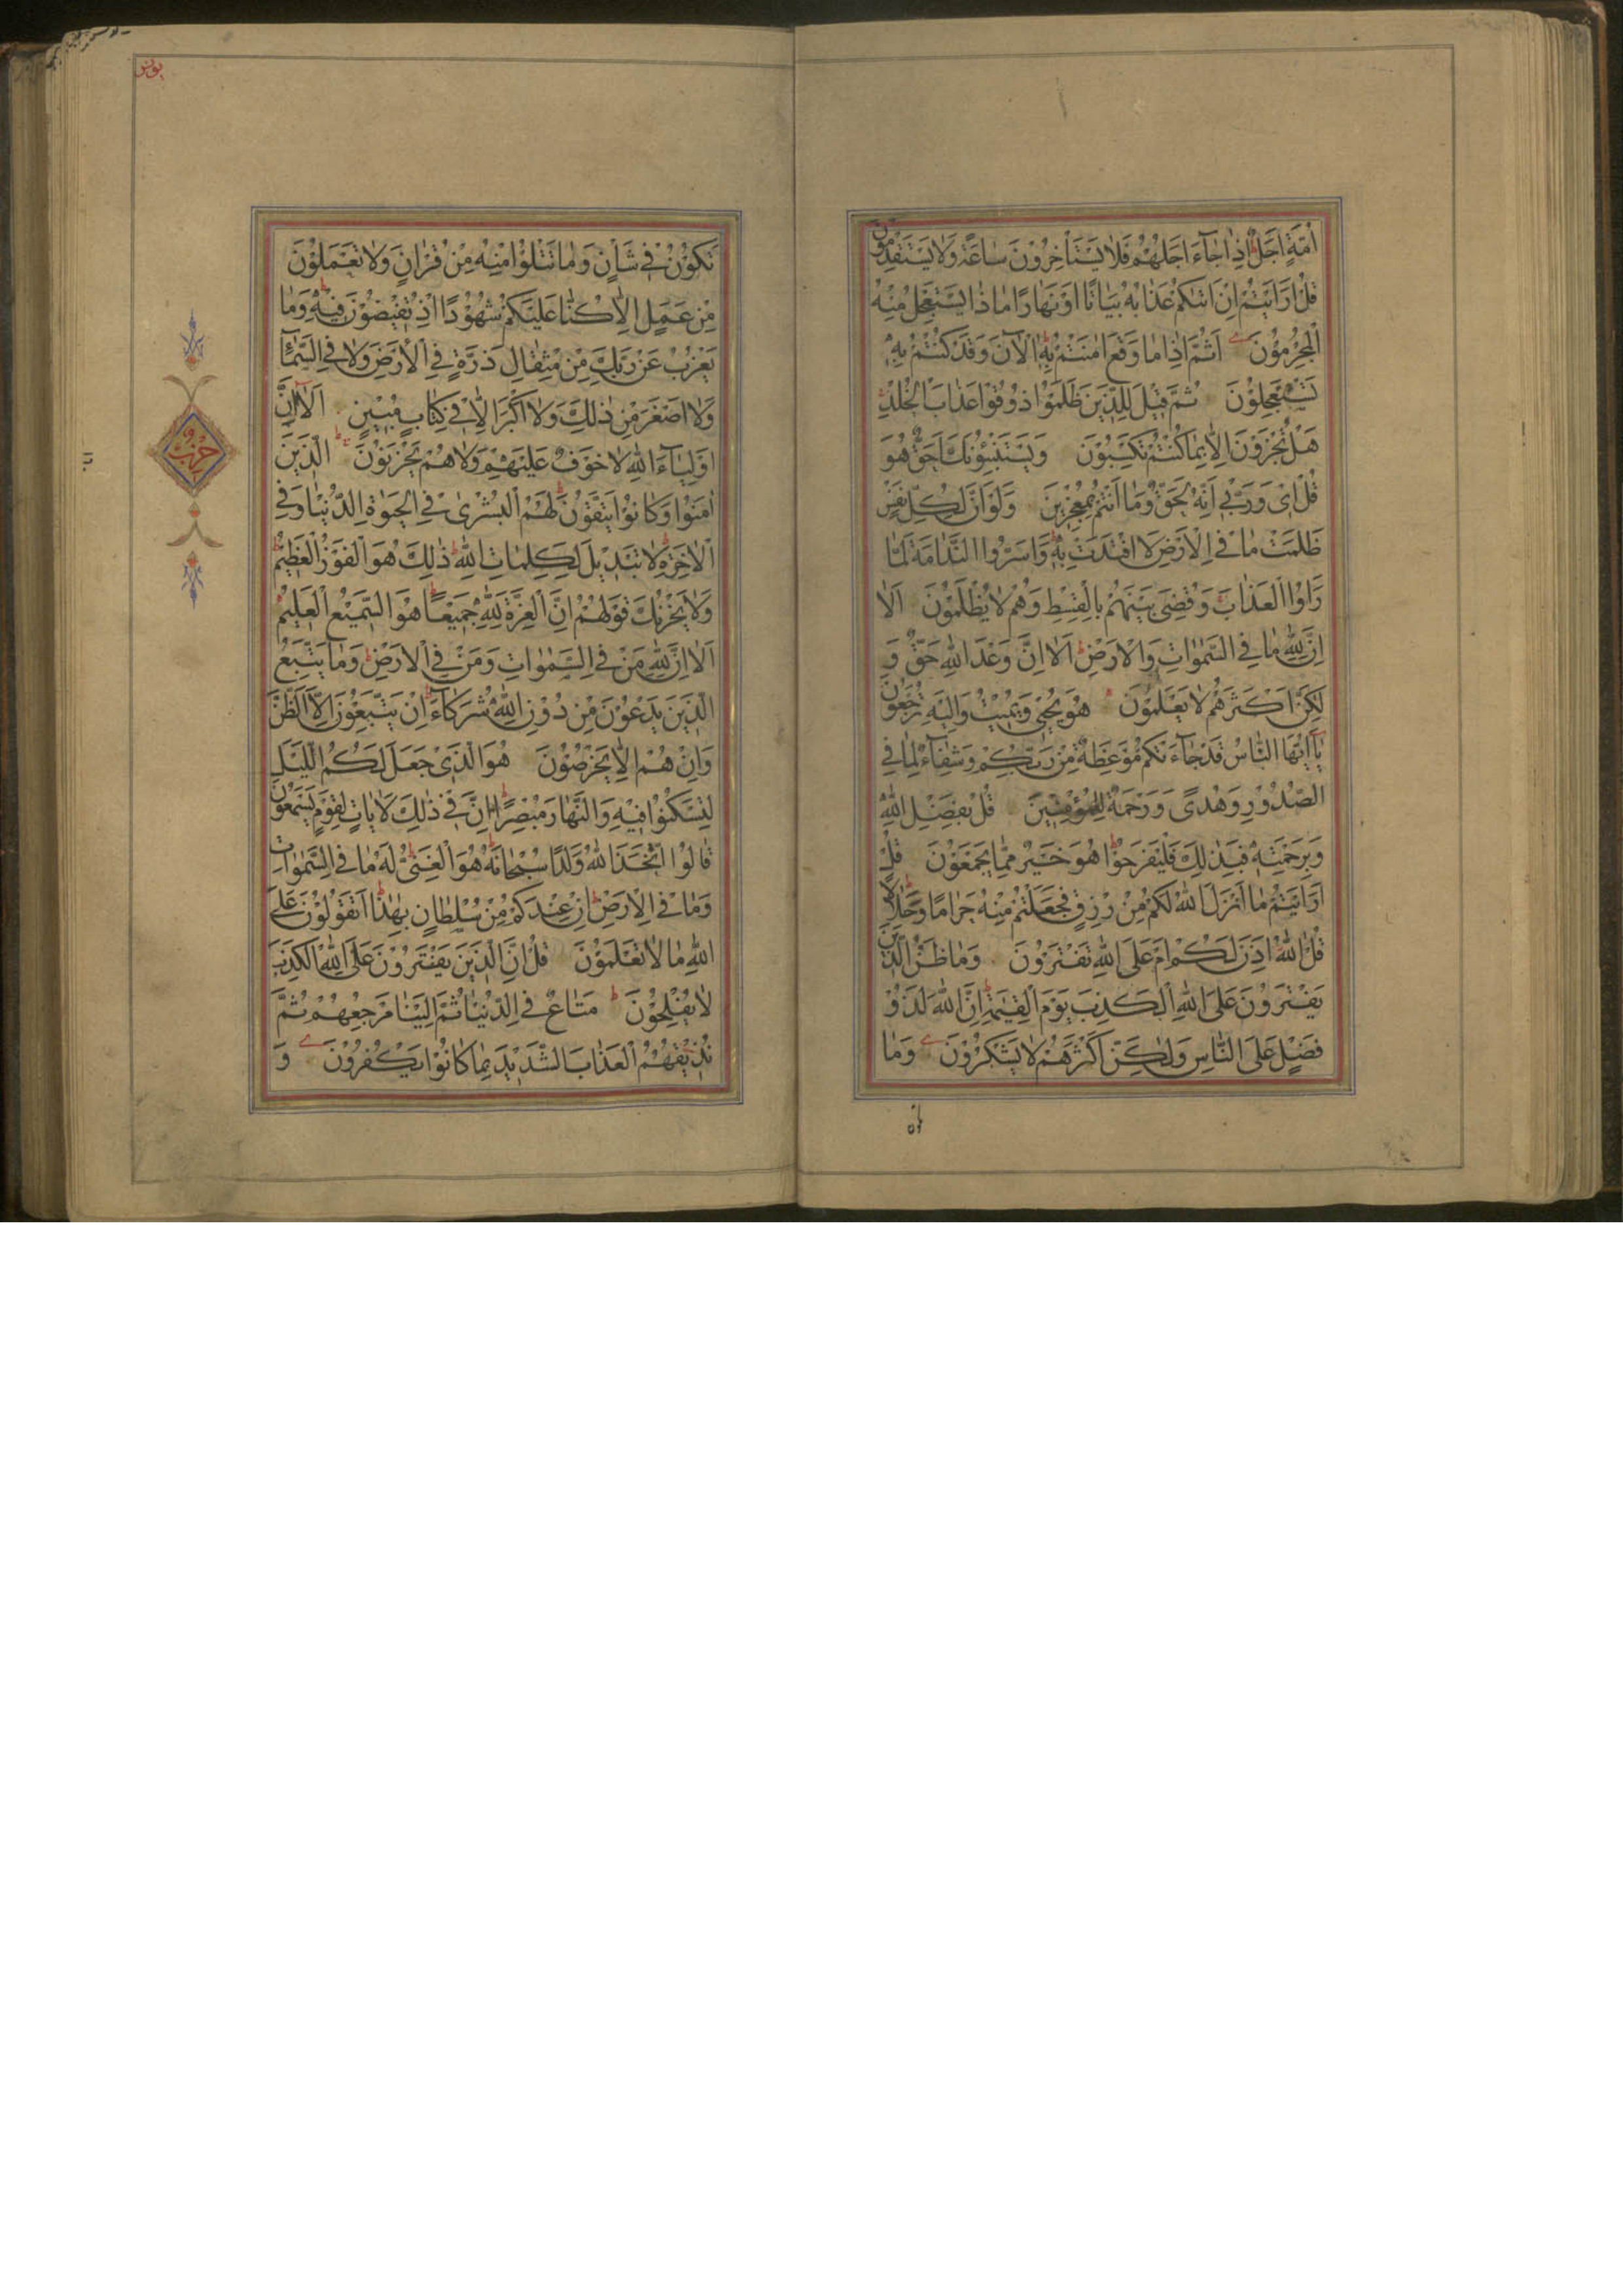 اُمَّةٍ اَجَلٌ اِذٰا جٰآءَ اَجَلُهُمْ فَلاٰ يَسْتَأْخِرُوْنَ سٰاعَةً وَلاٰ يَسْتَقْدِمُوْنَ
قُلْ اَرَاَيْتُمْ اِنْ اَتٰكُمْ عَذٰابُهُ بَيٰاتًا اَوْ نَهٰارًا مٰا ذٰا يَسْتَعْجِلُ مِنْهُ
الْمُجْرِمُوْنَ اَثُمَّ اِذٰا مٰا وَقَعَ اٰمَنْتُمْ بِهِ اٰلْاٰنَ وَقَدْ كُنْتُمْ بِهِ
تَسْتَعْجِلُوْنَ ثُمَّ قِيْلَ لِلَّذِيْنَ ظَلَمُوْا ذُوْقُوْا عَذٰابَ الْخُلْدِ
هَلْ تُجْزَوْنَ اِلاّٰ بِمٰا كُنْتُمْ تَكْسِبُوْنَ وَيَسْتَنْبِئُوْنَكَ اَحَقٌّ هُوَ
قُلْ اِىْ وَرَبِّىْ اِنَّهُ لَحَقٌّ وَمٰا اَنْتُمْ بِمُعْجِزِيْنَ وَلَوْ اَنَّ لِكُلِّ نَفْسٍ
ظَلَمَتْ مٰا فِى الْاَرْضِ لَافْتَدَتْ بِهِ وَاَسَرُّوا النَّدٰامَةَ لَمّٰا
رَاَوُا الْعَذٰابَ وَقُضِىَ بَيْنَهُمْ بِالْقِسْطِ وَهُمْ لاٰ يُظْلَمُوْنَ اَلاٰ
اِنَّ لِلّٰهِ مٰا فِى السَّمٰوٰاتِ وَالْاَرْضِ اَلاٰ اِنَّ وَعْدَ اللّٰهِ حَقٌّ وَ
لٰكِنَّ اَكْثَرَهُمْ لاٰ يَعْلَمُوْنَ هُوَ يُحْيِىْ وَيُمِيْتُ وَاِلَيْهِ تُرْجَعُوْنَ
يٰآ اَيُّهَا النّٰاسُ قَدْ جٰآءَتْكُمْ مَوْعِظَةٌ مِنْ رَبِّكُمْ وَشِفٰآءٌ لِمٰا فِى
الصُّدُوْرِ وَهُدًى وَرَحْمَةٌ لِلْمُؤْمِنِيْنَ قُلْ بِفَضْلِ اللّٰهِ
وَبِرَحْمَتِهِ فَبِذٰلِكَ فَلْيَفْرَحُوْا هُوَ خَيْرٌ مِمّٰا يَجْمَعُوْنَ قُلْ
اَرَاَيْتُمْ مٰا اَنْزَلَ اللّٰهُ لَكُمْ مِنْ رِزْقٍ فَجَعَلْتُمْ مِنْهُ حَرٰامًا وَحَلاٰلاً
قُلْ اٰللّٰهُ اَذِنَ لَكُمْ اَمْ عَلَى اللّٰهِ تَفْتَرُوْنَ وَمٰا ظَنُّ الَّذِيْنَ
يَفْتَرُوْنَ عَلَى اللّٰهِ الْكَذِبَ يَوْمَ الْقِيٰمَةِ اِنَّ اللّٰهَ لَذُوْ
فَضْلٍ عَلَى النّٰاسِ وَلٰكِنَّ اَكْثَرَهُمْ لاٰ يَشْكُرُوْنَ وَمٰا
يونس
تَكُوْنُ فِىْ شَأْنٍ وَمٰا تَتْلُوْا مِنْهُ مِنْ قُرْاٰنٍ وَلاٰ تَعْمَلُوْنَ
مِنْ عَمَلٍ اِلاّٰ كُنّٰا عَلَيْكُمْ شُهُوْدًا اِذْ تُفِيْضُوْنَ فِيْهِ وَمٰا
يَعْزُبُ عَنْ رَبِّكَ مِنْ مِثْقٰالِ ذَرَّةٍ فِى الْاَرْضِ وَلاٰ فِى السَّمٰآءِ
وَلاٰ اَصْغَرَ مِنْ ذٰلِكَ وَلاٰ اَكْبَرَ اِلاّٰ فِىْ كِتٰابٍ مُبِيْنٍ اَلاٰ اِنَّ
اَوْلِيٰآءَ اللّٰهِ لاٰ خَوْفٌ عَلَيْهِمْ وَلاٰ هُمْ يَحْزَنُوْنَ الَّذِيْنَ
اٰمَنُوْا وَكٰانُوْا يَتَّقُوْنَ لَهُمُ الْبُشْرٰى فِى الْحَيٰوةِ الدُّنْيٰا وَفِى
الْاٰخِرَةِ لاٰ تَبْدِيْلَ لِكَلِمٰاتِ اللّٰهِ ذٰلِكَ هُوَ الْفَوْزُ الْعَظِيْمُ
وَلاٰ يَحْزُنْكَ قَوْلُهُمْ اِنَّ الْعِزَّةَ لِلّٰهِ جَمِيْعًا هُوَ السَّمِيْعُ الْعَلِيْمُ
اَلاٰ اِنَّ لِلّٰهِ مَنْ فِى السَّمٰوٰاتِ وَمَنْ فِى الْاَرْضِ وَمٰا يَتَّبِعُ
الَّذِيْنَ يَدْعُوْنَ مِنْ دُوْنِ اللّٰهِ شُرَكٰآءَ اِنْ يَتَّبِعُوْنَ اِلاَّ الظَّنَّ
وَاِنْ هُمْ اِلاّٰ يَخْرُصُوْنَ هُوَ الَّذِىْ جَعَلَ لَكُمُ اللَّيْلَ
لِتَسْكُنُوْا فِيْهِ وَالنَّهٰارَ مُبْصِرًا اِنَّ فِىْ ذٰلِكَ لَاٰيٰاتٍ لِقَوْمٍ يَسْمَعُوْنَ
قٰالُوْا اتَّخَذَ اللّٰهُ وَلَدًا سُبْحٰانَهُ هُوَ الْغَنِىُّ لَهُ مٰا فِى السَّمٰوٰاتِ
وَمٰا فِى الْاَرْضِ اِنْ عِنْدَكُمْ مِنْ سُلْطٰانٍ بِهٰذٰا اَتَقُوْلُوْنَ عَلَى
اللّٰهِ مٰا لاٰ تَعْلَمُوْنَ قُلْ اِنَّ الَّذِيْنَ يَفْتَرُوْنَ عَلَى اللّٰهِ الْكَذِبَ
لاٰ يُفْلِحُوْنَ مَتٰاعٌ فِى الدُّنْيٰا ثُمَّ اِلَيْنٰا مَرْجِعُهُمْ ثُمَّ
نُذِيْقُهُمُ الْعَذٰابَ الشَّدِيْدَ بِمٰا كٰانُوْا يَكْفُرُوْنَ وَ
حزب